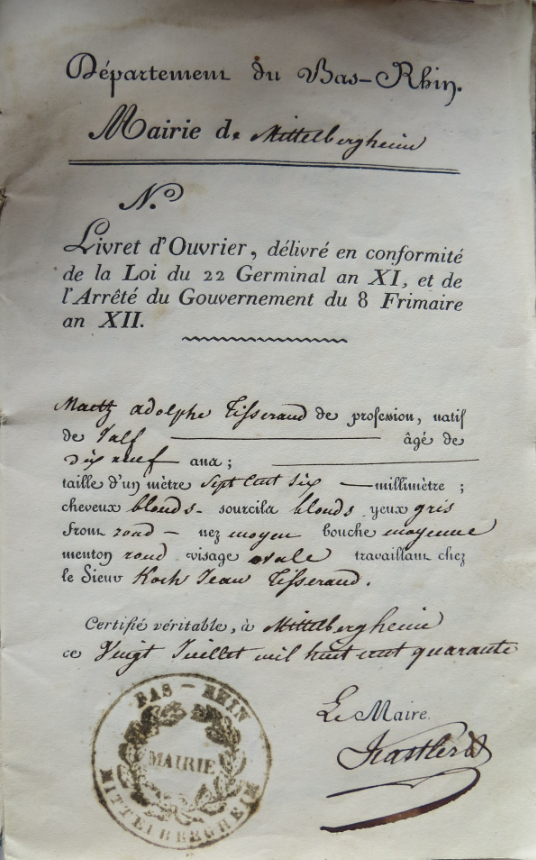 Département du Bas-Rhin.
Mairie de Mittelbergheim
N.o
Livret d'Ouvrier, délivré en conformité
de la Loi du 22 Germinal an XI, et de
l'Arrêté du Gouvernement du 8 Frimaire
an XII.
Maetz adolphe Tisserand de profession, natif
de Valf âgé de
dix neuf ans ;
taille d'un mètre sept cent six millimètre ;
cheveux blonds sourcils blonds yeux gris
front rond nez moyen bouche moyenne
menton rond visage ovale travaillant chez
le Sieur Koch Jean Tisserand.
Certifié véritable, à Mittelbergheim
ce Vingt Juillet mil huit cent quarante
Le Maire.
BAS-RHIN
MAIRIE
MITTELBERGHEIM